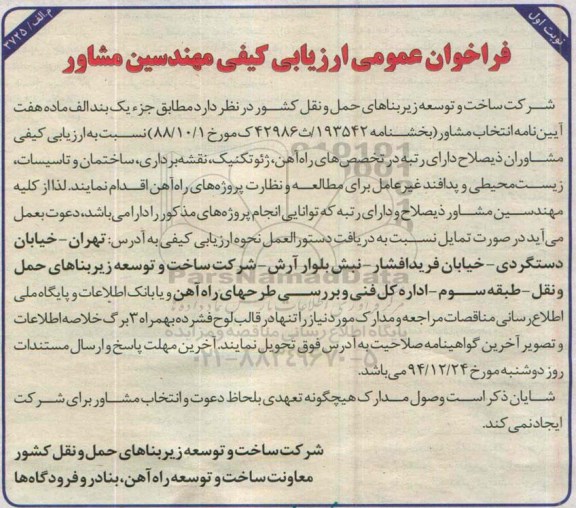 نوبت اول
م.الف/۳۷۲۵
فراخوان عمومی ارزیابی کیفی مهندسین مشاور
شرکت ساخت و توسعه زیربناهای حمل و نقل کشور در نظر دارد مطابق جزء یک بند الف ماده هفت
آیین‌نامه انتخاب مشاور (بخشنامه ۱۹۳۵۴۲/ت۴۲۹۸۶ک مورخ ۸۸/۱۰/۱) نسبت به ارزیابی کیفی
مشاوران ذیصلاح دارای رتبه در تخصص‌های راه‌آهن، ژئوتکنیک، نقشه‌برداری، ساختمان و تاسیسات،
زیست‌محیطی و پدافند غیرعامل برای مطالعه و نظارت پروژه‌های راه‌آهن اقدام نمایند. لذا از کلیه
مهندسین مشاور ذیصلاح و دارای رتبه که توانایی انجام پروژه‌های مذکور را دارا می‌باشد، دعوت بعمل
می‌آید در صورت تمایل نسبت به دریافت دستورالعمل نحوه ارزیابی کیفی به آدرس: تهران - خیابان
دستگردی - خیابان فریدافشار - نبش بلوار آرش - شرکت ساخت و توسعه زیربناهای حمل
و نقل - طبقه سوم - اداره کل فنی و بررسی طرحهای راه آهن و یا بانک اطلاعات و پایگاه ملی
اطلاع‌رسانی مناقصات مراجعه و مدارک مورد نیاز را تنها در قالب لوح فشرده بهمراه ۳ برگ خلاصه اطلاعات
و تصویر آخرین گواهینامه صلاحیت به آدرس فوق تحویل نمایند. آخرین مهلت پاسخ و ارسال مستندات
روز دوشنبه مورخ ۹۴/۱۲/۲۴ می‌باشد.
شایان ذکر است وصول مدارک هیچگونه تعهدی بلحاظ دعوت و انتخاب مشاور برای شرکت
ایجاد نمی کند.
شرکت ساخت و توسعه زیربناهای حمل و نقل کشور
معاونت ساخت و توسعه راه‌آهن، بنادر و فرودگاه‌ها
ParsNamadData
پایگاه اطلاع رسانی مناقصه و مزایده
۰۲۱-۸۸۳۴۹۶۷۰-۵